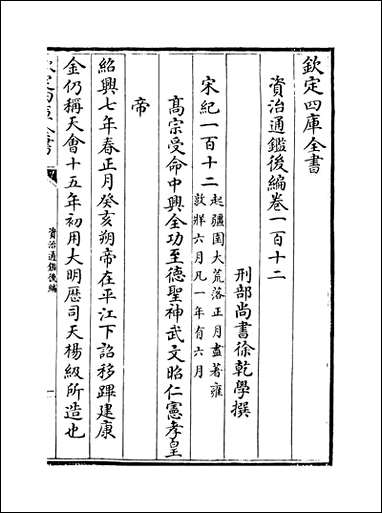 欽定四庫全書
資治通鑑後編卷一百十二
刑部尚書徐乾學撰
宋紀一百十二起彊圉大荒落正月盡著雍
敦牂六月凡一年有六月
高宗受命中興全功至德聖神武文昭仁憲孝皇
帝
紹興七年春正月癸亥朔帝在平江下詔移蹕建康
金仍稱天會十五年初用大明厯司天楊級所造也
欽定四庫全書
資治通鑑後編
一